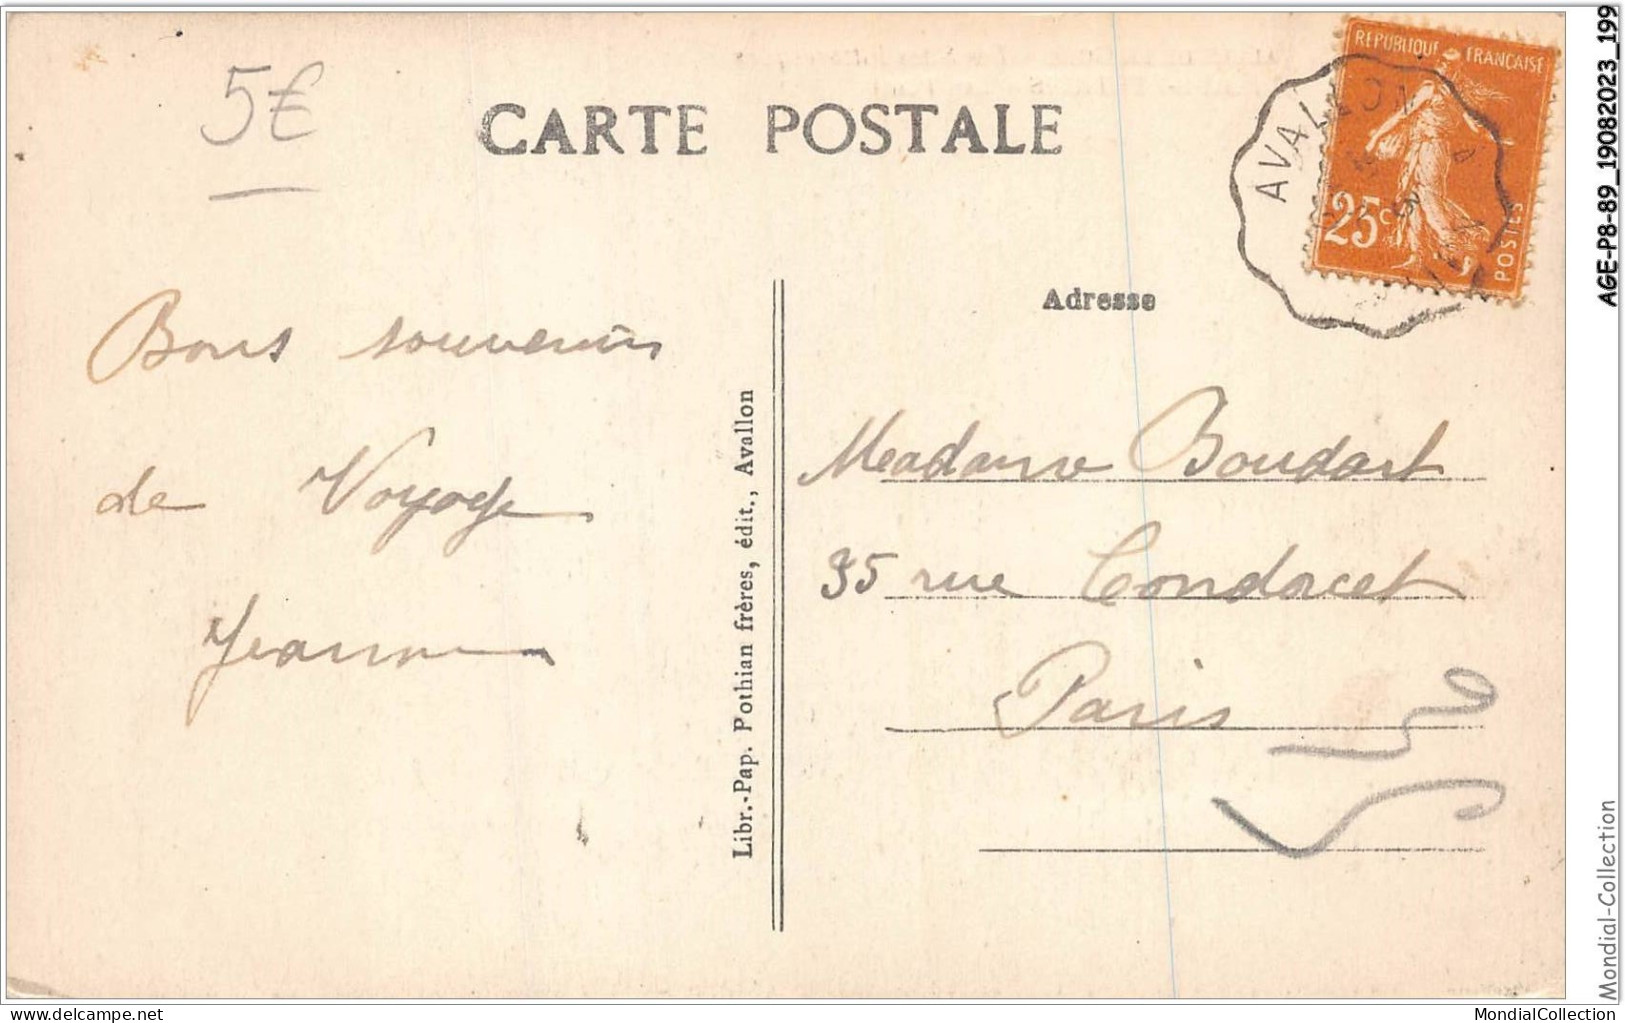 5€
CARTE POSTALE
REPUBLIQUE FRANCAISE
25c
POSTES
AVALLON
Adresse
Bons souvenirs
de Voyage
Jeanne
Libr.-Pap. Pothian frères, édit., Avallon
Madame Boudart
35 rue Condorcet
Paris
AGE-P8-89_19082023_199
Mondial-Collection
delcampe.net
MondialCollection